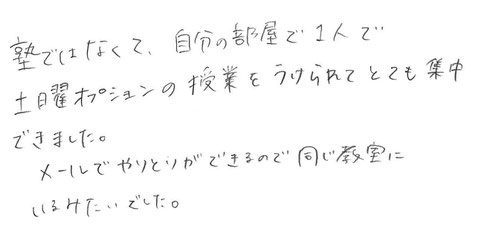 塾ではなくて、自分の部屋で1人で
土日曜オプションの授業をうけられてとても集中
できました。
メールでやりとりができるので同じ教室に
いるみたいでした。